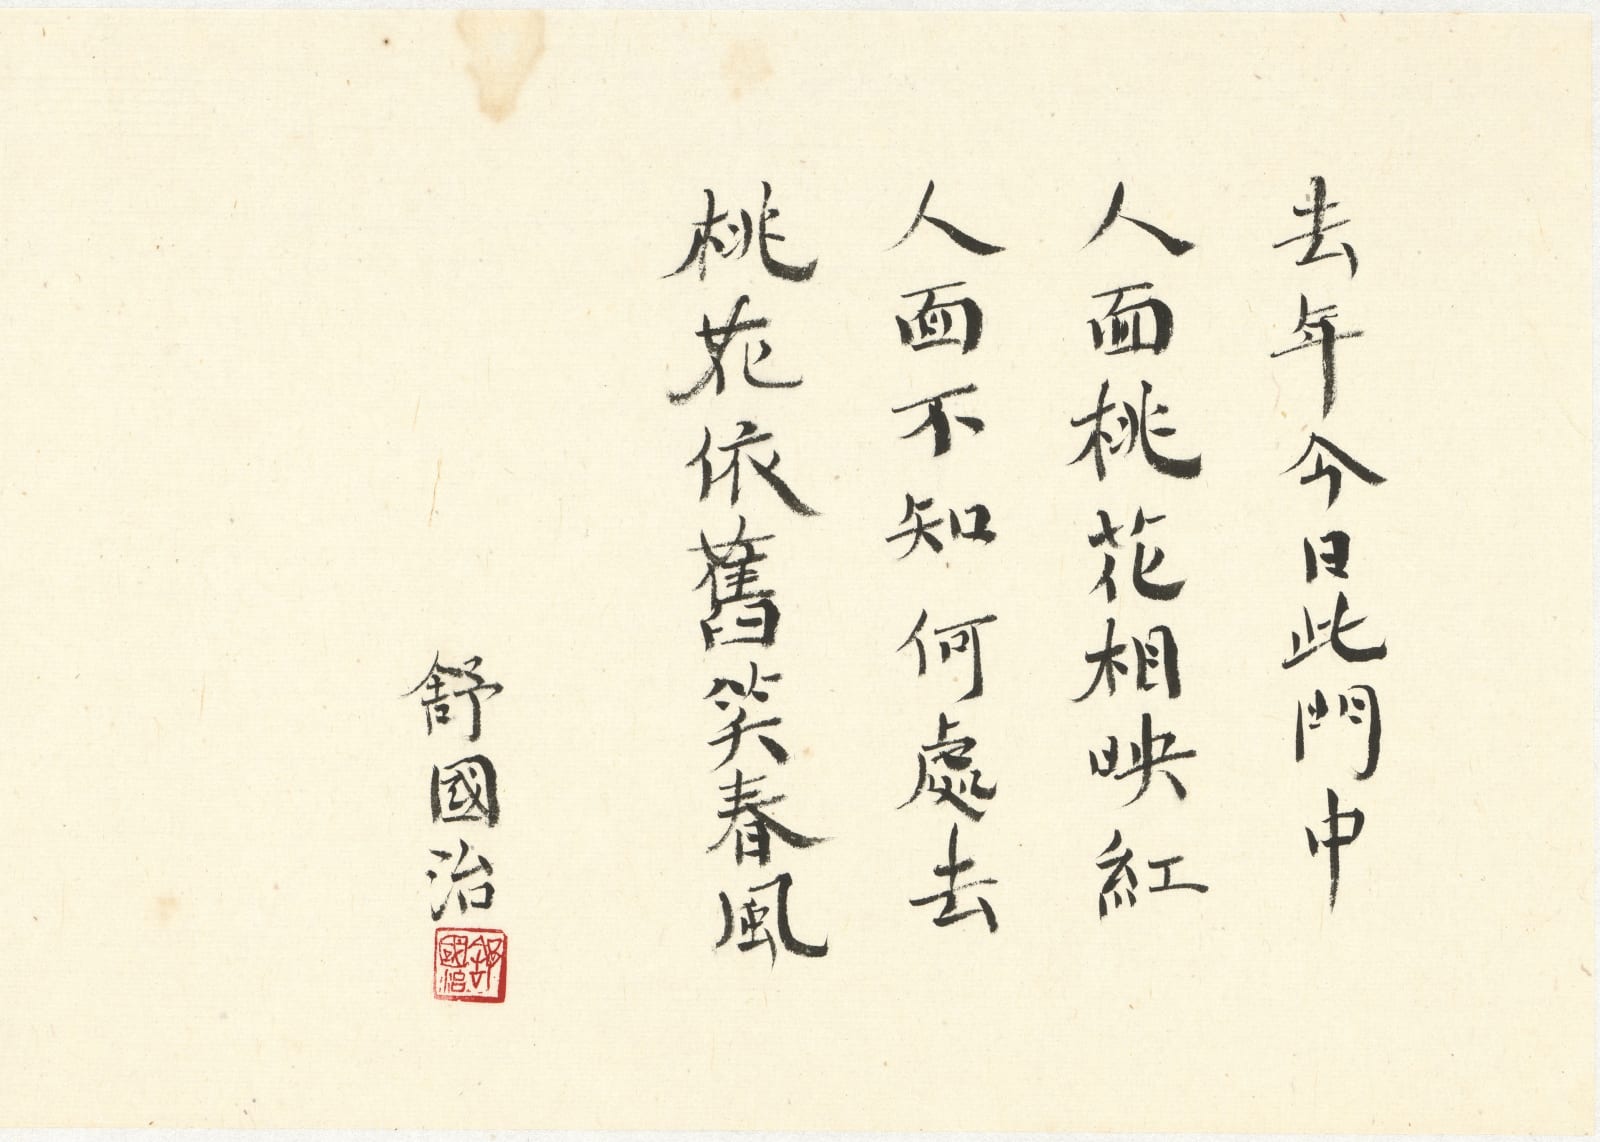 去年今日此門中
人面桃花相映紅
人面不知何處去
桃花依舊笑春風
舒國治
舒國治